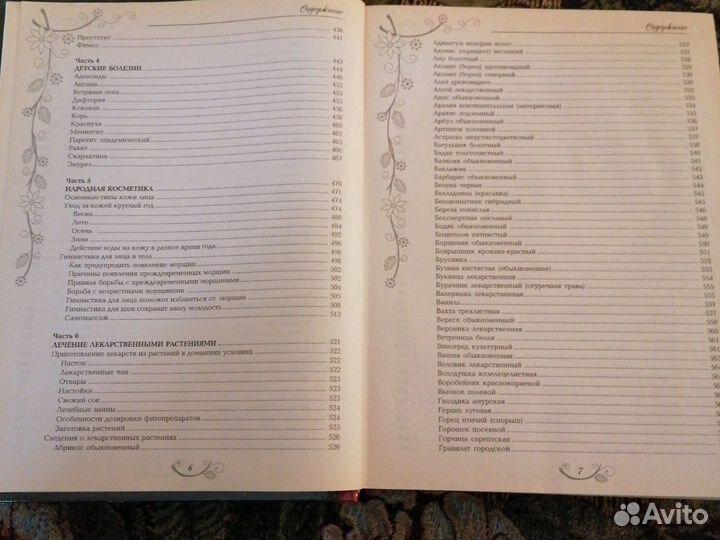 Содержание
Простатит 436
Фимоз 441
Часть 4 443
ДЕТСКИЕ БОЛЕЗНИ 444
Аденоиды 446
Ангина 452
Ветряная оспа
Дифтерия
Коклюш
Корь
Краснуха
Менингит 460
Паротит эпидемический 462
Рахит
Скарлатина
Энурез 467
Часть 5 470
НАРОДНАЯ КОСМЕТИКА 471
Основные типы кожи лица 474
Уход за кожей круглый год 474
Весна 480
Лето 484
Осень
Зима
Действие воды на кожу в разное время года 496
Гимнастика для лица и тела 498
Как предупредить появление морщин 498
Причины появления преждевременных морщин 502
Правила борьбы с преждевременными морщинами 502
Борьба с возрастными морщинами 504
Гимнастика для лица поможет избавиться от морщин 505
Гимнастика для шеи сохранит вашу молодость 508
Самомассаж 513
Часть 6
ЛЕЧЕНИЕ ЛЕКАРСТВЕННЫМИ РАСТЕНИЯМИ 521
Приготовление лекарств из растений в домашних условиях 522
Настои 522
Лекарственные чаи 522
Отвары 523
Настойки 523
Свежий сок 523
Лечебные ванны 524
Особенности дозировки фитопрепаратов 524
Заготовка растений 525
Сведения о лекарственных растениях 526
Абрикос обыкновенный 526
6
Содержание
Адиантум венерин волос 527
Адонис (горицвет) весенний
Аир болотный
Аконит (борец) противоядный
Аконит (борец) северный
Алоэ древовидное
Алтей лекарственный
Анис обыкновенный
Аралия континентальная (материковая) 534
Арахис подземный
Арбуз обыкновенный
Артишок посевной
Астрагал шерстистоцветковый
Багульник болотный 538
Бадан толстолистный
Базилик обыкновенный
Баклажан
Барбарис обыкновенный
Белена черная
Белладонна (красавка)
Белокопытник гибридный
Береза повислая
Бессмертник песчаный
Бодяк обыкновенный
Болиголов пятнистый
Борщевик обыкновенный
Боярышник кроваво-красный 551
Брусника 552
Бузина кистистая (обыкновенная)
Буквица лекарственная
Бурачник лекарственный (огуречная трава)
Валериана лекарственная
Ваниль
Вахта трехлистная
Вереск обыкновенный
Вероника лекарственная
Ветреница белая
Виноград культурный
Вишня обыкновенная
Воловик лекарственный
Володушка козелецелистная
Воробейник краснокорневой
Вьюнок полевой
Гвоздика амурская
Герань луговая
Горец птичий (спорыш)
Горошек посевной
Горчица сарептская
Гравилат городской
7
Avito